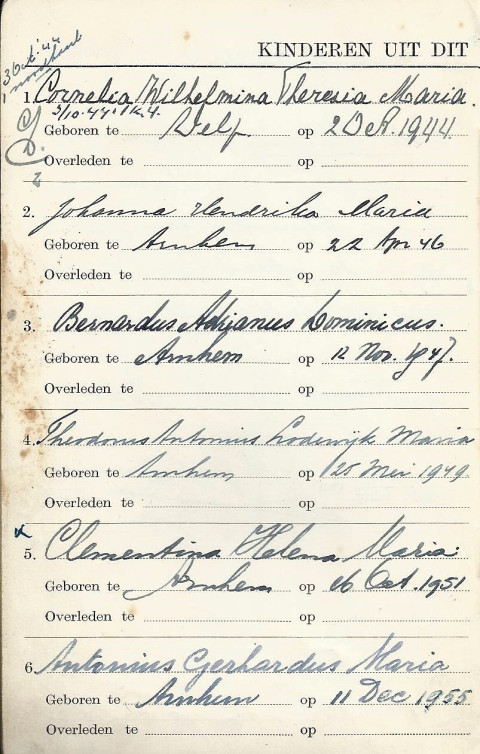 3 Oct. '44
KINDEREN UIT DIT
1. Cornelia Wilhelmina Theresia Maria.
3/10.44
Geboren te Delf op 2 Oct. 1944.
Overleden te op
2. Johanna Hendrika Maria
Geboren te Arnhem op 22 Apr 46
Overleden te op
3. Bernardus Adrianus Dominicus.
Geboren te Arnhem op 12 Nov. 1947.
Overleden te op
4. Theodorus Antonius Lodewijk Maria
Geboren te Arnhem op 25 Mei 1949
Overleden te op
5. Clementina Helena Maria
Geboren te Arnhem op 16 Oct. 1951
Overleden te op
6. Antonius Gerhardus Maria
Geboren te Arnhem op 11 Dec 1955
Overleden te op